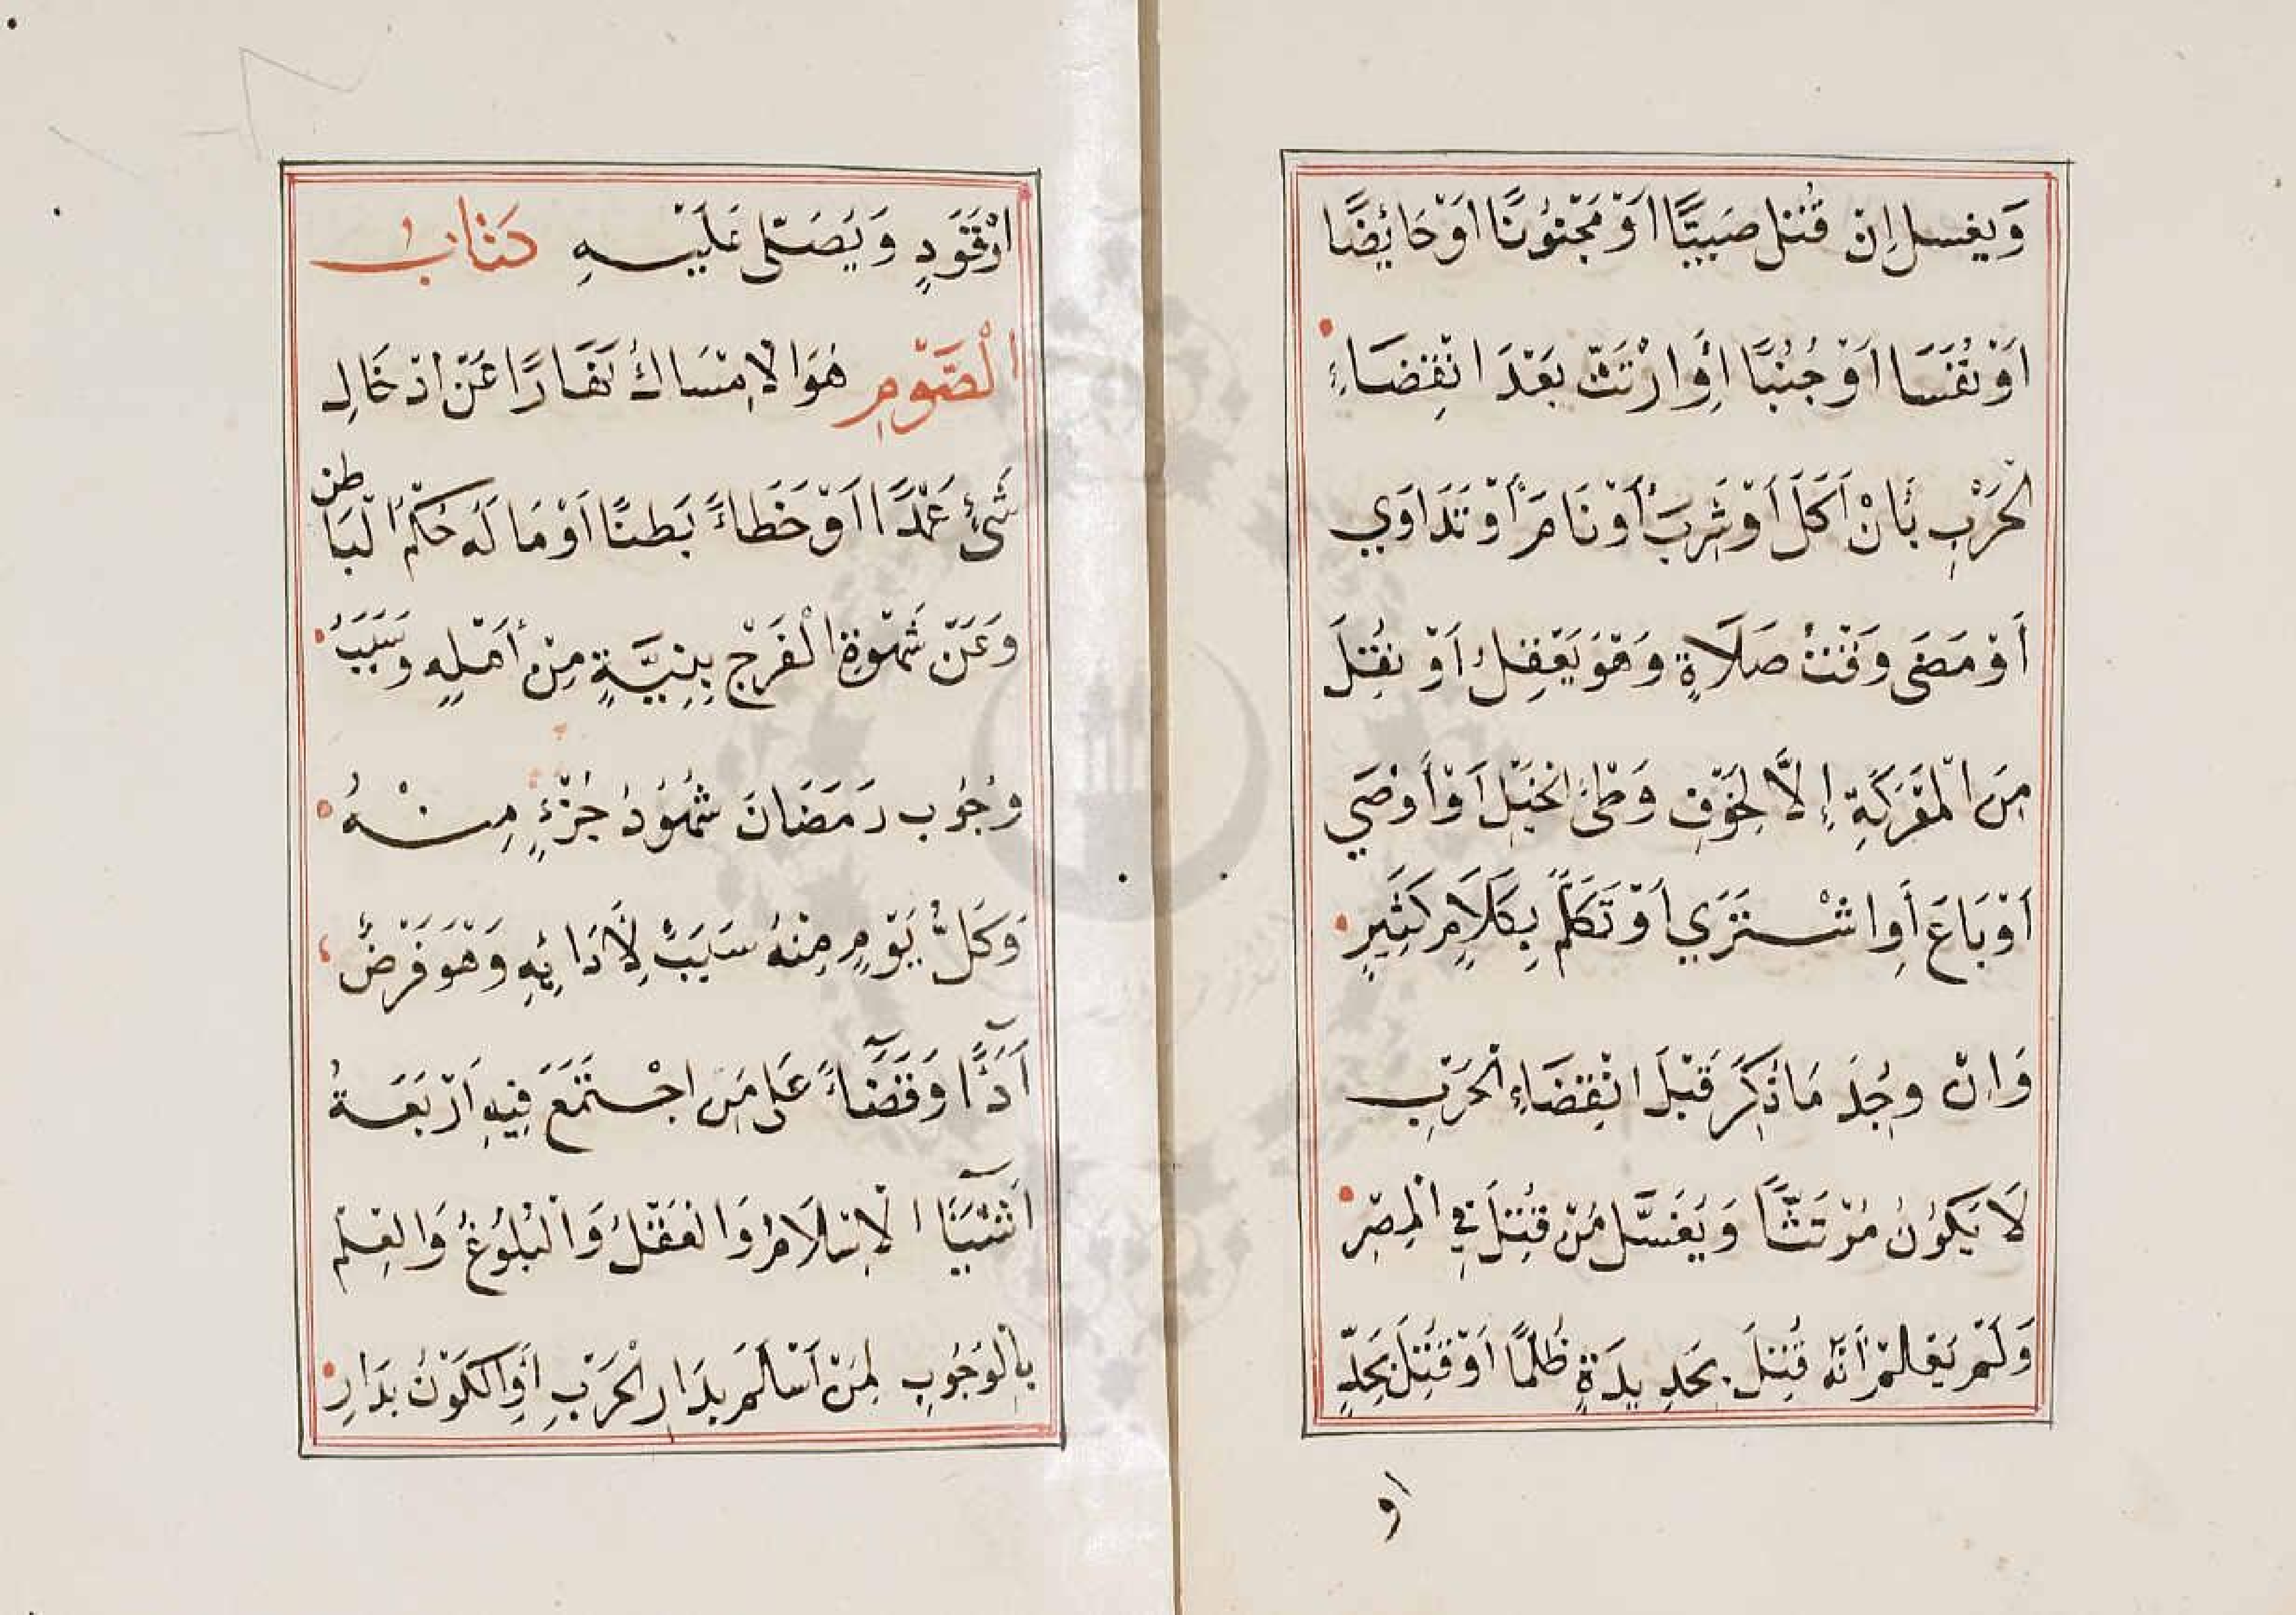 وَيغسل إِنْ قُتِلَ صَبِيًّا اَوْ مَجْنُونًا اَوْ حَائِضًا
اَوْ نُفَسَا اَوْ جُنُبًا أَوِ ارْتَثَّ بَعْدَ انْقِضَاءِ
الحَرْبِ بَأنْ اَكَلَ اَوْ شَرِبَ أَوْ نَامَ أَوْ تَدَاوَي
أَوْ مَضَى وَقْتُ صَلَاةٍ وَهُوَ يَعْقِلُ اَوْ نُقِلَ
مِنَ الْمَعْرَكَةِ إِلاَّ لِخَوْفِ وَطْئِ الْخَيْلِ اَوْ أَوْصَي
اَوْ بَاعَ أَوِ اشْتَرَي أَوْ تَكَلَّمَ بِكَلَامٍ كَثِيرٍ
وَانْ وجِدَ مَا ذُكِرَ قَبْلَ انْقِضَاءِ الْحَرْبِ
لَا يَكُوُنُ مُرْتَثًّا وَيُغَسَّل مَنْ قُتِلَ فِي الْمِصْرِ
وَلَمْ يَعْلَمْ أَنَّهُ قُتِلَ بِحَدِيدَةٍ ظُلْمًا اَوْ قُتِلَ بِحَدِّ
او
اوْ قَوَدٍ وَيُصَلّى عَلَيْهِ كتَابُ
الْصَّوْمِ هُوَ الامْسَاكُ نَهَارًا عَنْ ادْخَالِ
شَئٍ عَمْدًا اَوْ خَطَاءً بَطنًا اَوْ مَا لَهُ حُكْمُ الْبَاطن
وَعَنْ شَهْوَةِ الْفَرْجِ بِنِيَّةٍ مِنْ أَهْلِهِ وسَبَبُ
وجُوُب رَمَضَانَ شُهُوُدُ جُزْءٍ مِنْهُ
وَكُلُّ يَوْمٍ مِنْهُ سَبَبٌ لِأَدَائِهِ وَهُوَ فَرْضٌ
أَدَآءً وَقَضَآءً عَلى مَنِ اجْتَمَعَ فِيهِ اَرْبَعَةُ
اَشْيَآءَ الْاِسْلَامُ وَالْعَقْلُ وَالْبُلُوُغُ وَالعِلْم
بِالْوُجُوبِ لِمَنْ اَسْلَمَ بِدَارِ الْحَرْبِ أَوِ الكَوْنُ بِدَارِ